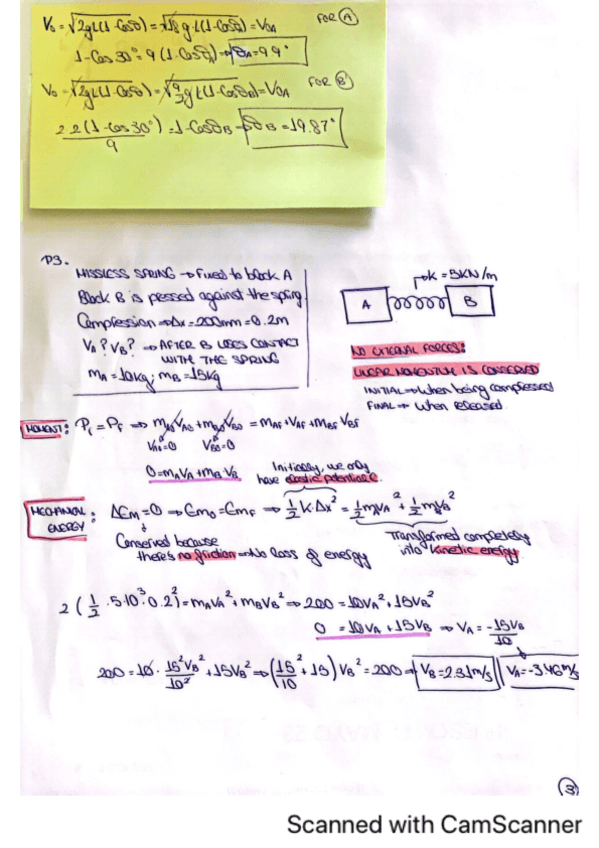 V₀ = √2gL(1-Cosθ) = √18 g·L(1-Cosθ_A) = V₀A FOR Ⓐ
1-Cos30° = 9(1-Cosθ_A) → θ_A = 9.9°
V₀ = √2gL(1-Cosθ) = gL(1-Cosθ_B) = V₀A FOR Ⓑ
2.2(1-Cos30°)/9 = 1-Cosθ_B → θ_B = 19.87°
P3.
MISSLESS SPRING → Fixed to block A
Block B is pessed against the spring
Compression ⇒ Δx = 200mm = 0.2m
V_A? V_B? → AFTER B LOSES CONTACT
WITH THE SPRING
m_A = 10kg; m_B = 15kg
k = 5KN/m
A B
NO EXTERNAL FORCES:
LINEAR MOMENTUM IS CONSERVED
INITIAL → When being compressed
FINAL → When released
MOMENT: P_i = P_F ⇒ m_A0 V_A0 + m_B0 V_B0 = m_AF + V_AF + m_BF V_BF
V_A0=0 V_B0=0
0 = m_A V_A + m_B V_B
Initially, we only
have elastic potential E.
MECHANICAL
ENERGY : ΔE_M = 0 ⇒ E_M0 = E_MF ⇒ 1/2 K·Δx² = 1/2 m_A V_A² + 1/2 m_B V_B²
Conserved because
there's no friction ⇒ No loss of energy
Transformed completely
into kinetic energy.
2(1/2 · 5·10³·0.2²) = m_A V_A² + m_B V_B² ⇒ 200 = 10V_A² + 15V_B²
0 = 10V_A + 15V_B ⇒ V_A = -15V_B/10
200 = 10 · 15²V_B²/10² + 15V_B² ⇒ (15²/10 + 15) V_B² = 200 ⇒ V_B = 2.31m/s V_A = -3.46m/s
③
Scanned with CamScanner